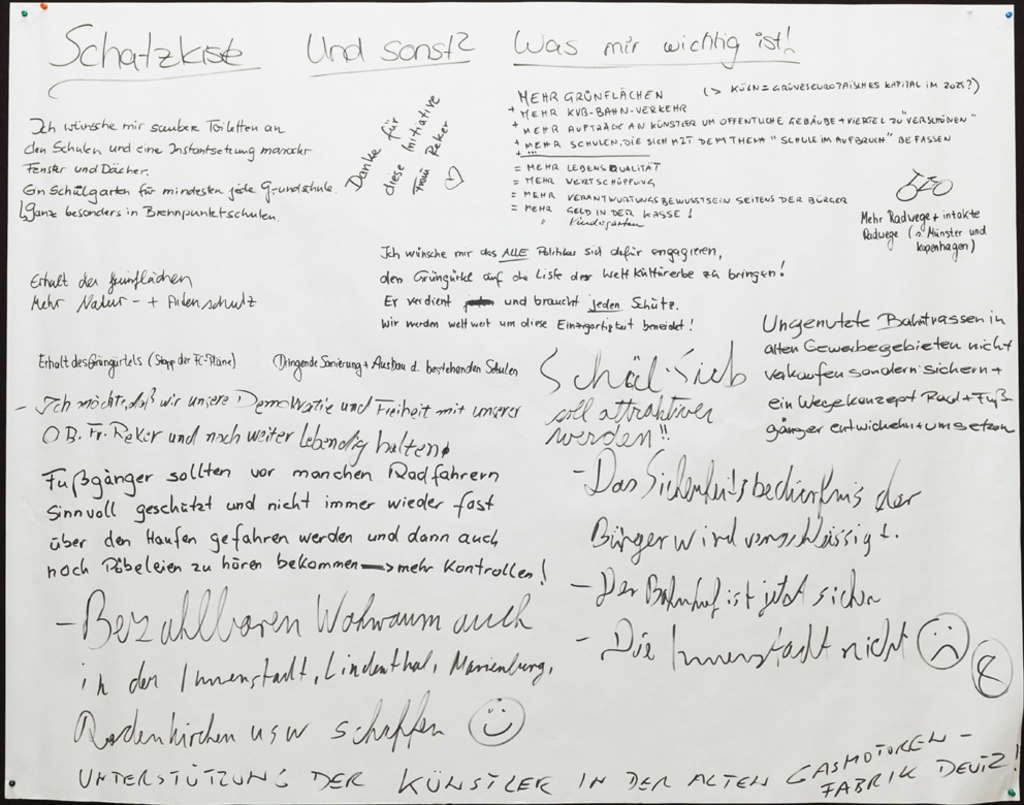 Schatzkiste Und sonst? Was mir wichtig ist!
Ich wünsche mir saubere Toiletten an
den Schulen und eine Instantsetzung mancher
Fenster und Dächer.
Ein Schulgarten für mindesten jede Grundschule.
Ganz besonders in Brennpunktschulen.
Danke für
diese Initiative
Frau Reker
MEHR GRÜNFLÄCHEN (> KÖLN = GRÜNES EUROPÄISCHES KAPITAL IM 2025?)
+ MEHR KVB-BAHN-VERKEHR
+ MEHR AUFTRÄGE AN KÜNSTLER UM ÖFFENTLICHE GEBÄUDE + VIERTEL ZU "VERSCHÖNEN"
+ MEHR SCHULEN, DIE SICH MIT DEM THEMA "SCHULE IM AUFBRUCH" BEFASSEN
+ ...
= MEHR LEBENSQUALITÄT
= MEHR WERTSCHÖPFUNG
= MEHR VERANTWORTUNGSBEWUSSTSEIN SEITENS DER BÜRGER
= MEHR GELD IN DER KASSE!
" Kindergärten
Mehr Radwege + intakte
Radwege (s. Münster und
Kopenhagen)
Ich wünsche mir das ALLE Politiker sich dafür engagieren,
den Grüngürtel auf die Liste der Weltkulturerbe zu bringen!
Er verdient und braucht jeden Schutz.
Wir werden weltweit um diese Einzigartigkeit beneidet!
Erhalt der Grünflächen
Mehr Natur- + Artenschutz
Erhalt des Grüngürtels (Stopp der FC-Pläne)
Dringende Sanierung + Ausbau d. bestehenden Schulen
Schäl Sieb
soll attraktiver
werden!!
Ungenutzte Bahntrassen in
alten Gewerbegebieten nicht
verkaufen sondern sichern +
ein Wegekonzept Rad + Fuß-
gänger entwickeln + umsetzen
- Ich möchte, daß wir unsere Demokratie und Freiheit mit unserer
OB. Fr. Reker und noch weiter lebendig halten
Fußgänger sollten vor manchen Radfahrern
sinnvoll geschützt und nicht immer wieder fast
über den Haufen gefahren werden und dann auch
noch Pöbeleien zu hören bekommen → mehr Kontrollen!
- Das Sicherheitsbedürfnis der
Bürger wird vernachlässigt.
- Der Bahnhof ist jetzt sicher
- Die Innenstadt nicht
- Bezahlbaren Wohnraum auch
in der Innenstadt, Lindenthal, Marienburg,
Rodenkirchen usw schaffen
UNTERSTÜTZUNG DER KÜNSTLER IN DER ALTEN GASMOTOREN-
FABRIK DEUTZ!